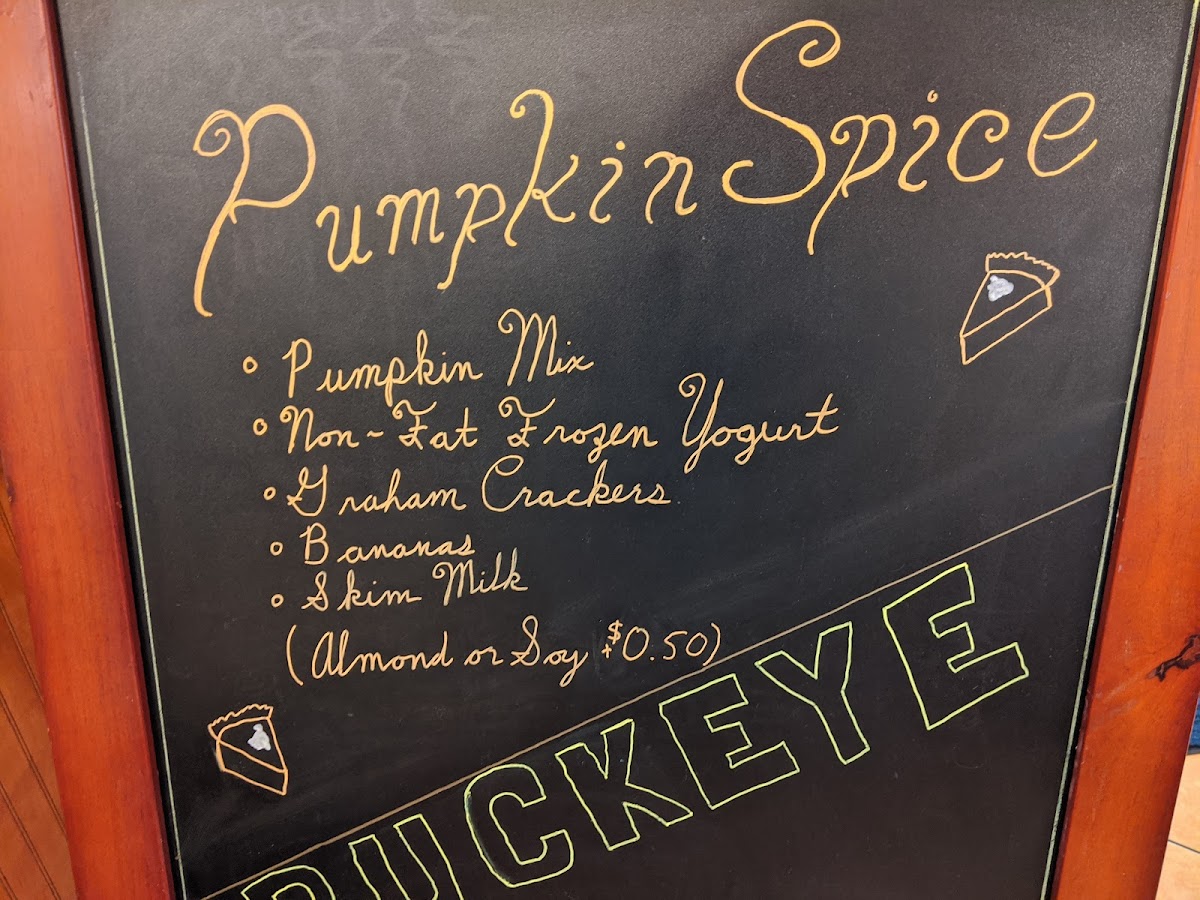 Pumpkin Spice
• Pumpkin Mix
• Non-Fat Frozen Yogurt
• Graham Crackers
• Bananas
• Skim Milk
(Almond or Soy +$0.50)
BUCKEYE